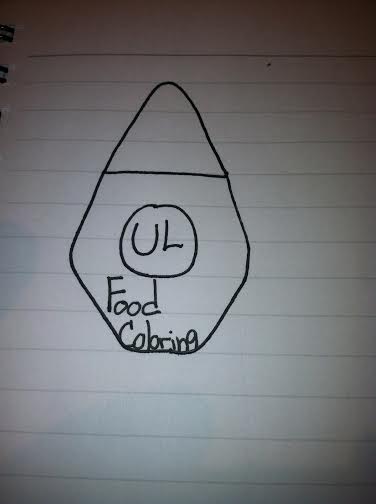 UL
Food
Coloring